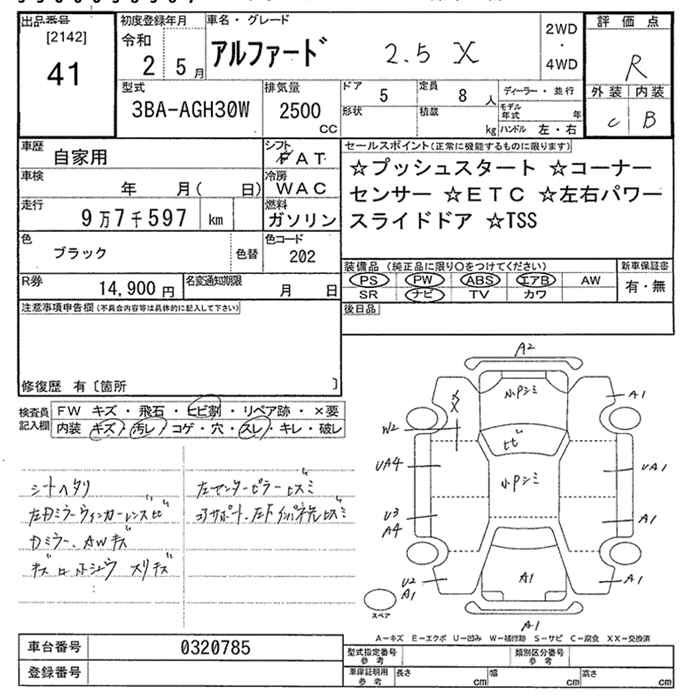 出品番号
[2142]
41
初度登録年月
令和
2 5月
車名・グレード
アルファード 2.5 X
2WD
・
4WD
評価点
R
外装 内装
C B
型式
3BA-AGH30W
排気量
2500
CC
ドア
5
定員
8人
ディーラー・並行
モデル年式 年
形状
積載
kg
ハンドル 左・右
車歴
自家用
シフト
FAT
車検
年 月( 日)
冷房
WAC
走行
9万7千597 km
燃料
ガソリン
色
ブラック
色替
色コード
202
R券
14,900円
名変通知期限
月 日
セールスポイント(正常に機能するものに限ります)
☆プッシュスタート ☆コーナー
センサー ☆ETC ☆左右パワー
スライドドア ☆TSS
装備品 (純正品に限り〇をつけてください)
PS PW ABS エアB AW
SR ナビ TV カワ
新車保証書
有・無
後日品
注意事項申告欄(不具合内容等は具体的に記入して下さい)
修復歴 有〔箇所 〕
検査員
記入欄
FW キズ・飛石・ヒビ割・リペア跡・×要
内装 キズ・汚レ・コゲ・穴・スレ・キレ・破レ
シートヘタリ
左Dミラーウィンカーレンズヒビ
Dミラー、AWキズ
左センターピラーヒズミ
コアサポート、左Fインパネ先ヒズミ
A2
小Pシミ
X
A1
W2
ヒビ
UA4
小Pシミ
UA1
U3
A4
A1
U2
A1
A1
A1
スペア
A1
A−キズ E−エクボ U−凹み W−補修跡 S−サビ C−腐食 XX−交換済
車台番号
0320785
登録番号
型式指定番号
参考
類別区分番号
参考
車庫証明用
参考
長さ cm
幅 cm
高さ cm